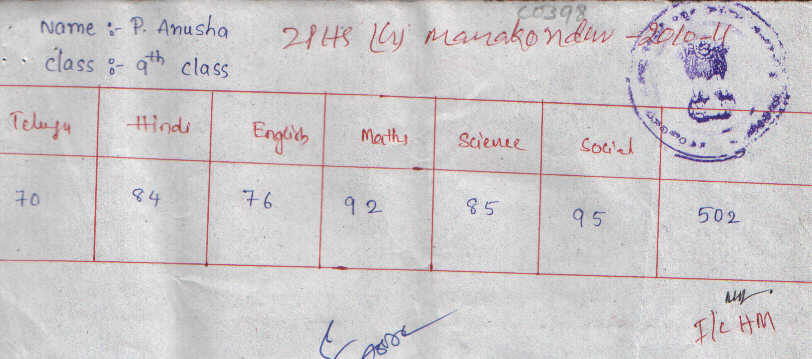 C0398
Name :- P. Anusha ZPHS (G) Manakondur - 2010-11
class :- 9th class
Telugu Hindi English Maths Science Social
70 84 76 92 85 95 502
I/c HM